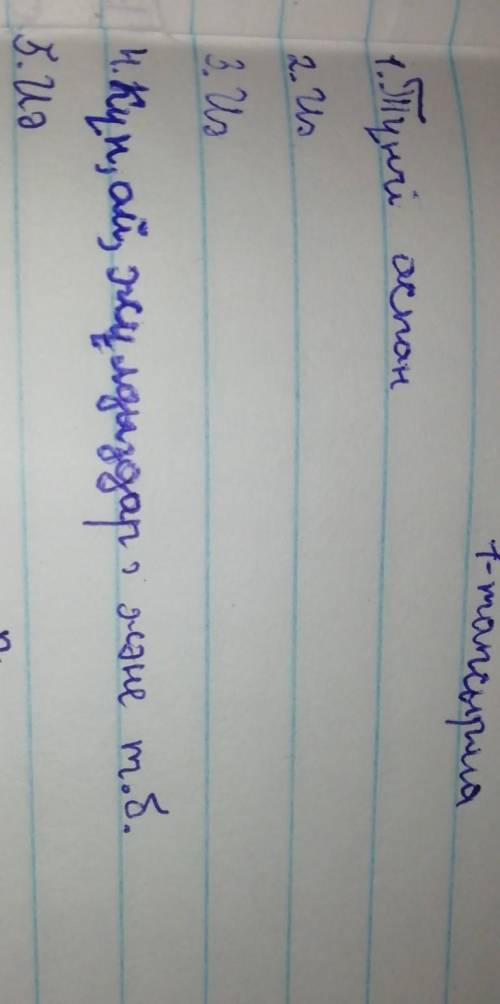 1-тапсырма
1. Түнгі аспан
2. Иә
3. Иә
4. Күн, ай, жұлдыздар, және т.б.
5. Иә